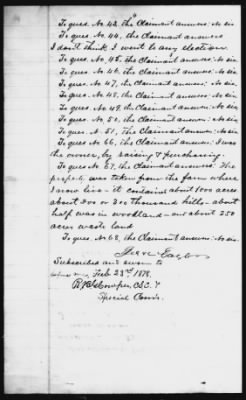 To ques. No 43, the Claimant answers: No sir
To ques. No. 44, the Claimant answers
I don't think I went to any election.
To ques. No. 45, the Claimant answers: No sir.
To ques. No. 46, the Claimant answers: No sir.
To ques. No. 47, the Claimant answers: No sir.
To ques. No. 48, the Claimant answers: No sir.
To ques. No 49, the Claimant answers: No sir.
To ques. No. 50, the Claimant answers: No sir.
To ques. N. 51, the Claimant answers: No sir.
To ques. No 66, the Claimant answers: I was
the owner, by raising & purchasing.
To ques. No. 67, the Claimant answers: The
property was taken from the farm where
I now live - it contains about 1000 acres
about two or 300 thousand hills - about
half was in woodland - and about 250
acres waste land
To ques. No 68, the Claimant answers: No sir
Subscribed and sworn to
before me, Feb 23rd, 1878.
Special Comr.